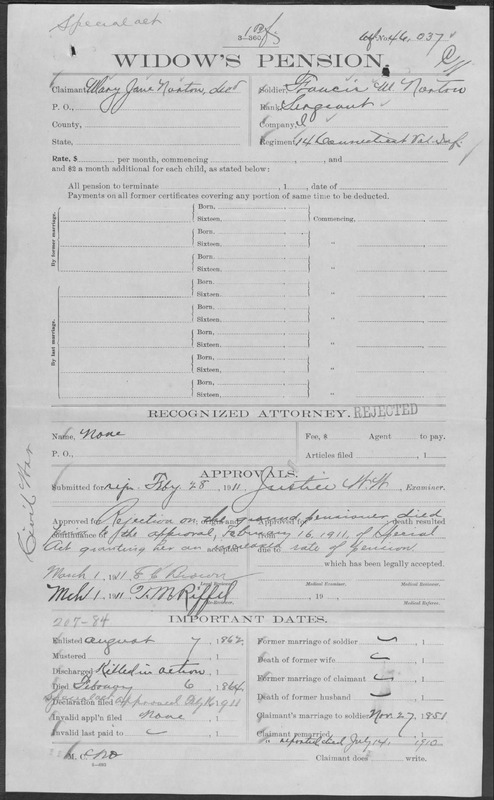 Special act
3-360
ctf. No. 46,037
WIDOW'S PENSION.
Claimant, Mary Jane Norton, decd Soldier, Francis M Norton
P. O., Rank, Sergeant
County, Company, I
State, Regiment, 14 Connecticut Vol. Inf.
Rate, $ per month, commencing , and
and $2 a month additional for each child, as stated below:
All pension to terminate , 1 , date of
Payments on all former certificates covering any portion of same time to be deducted.
By former marriage.
Born,
Sixteen. Commencing.
Born,
Sixteen. "
Born,
Sixteen. "
By last marriage.
Born,
Sixteen. "
Born,
Sixteen. "
Born,
Sixteen. "
Born,
Sixteen. "
Born,
Sixteen. "
RECOGNIZED ATTORNEY. REJECTED
Name, None Fee, $ Agent to pay.
P. O., Articles filed , 1
Civil War
APPROVALS.
Submitted for rejn Feby 28, 1911, Justice H.W. Examiner.
Approved for Rejection on the ground pensioner died
prior to the approval, February 16, 1911, of Special
Act granting her an increased rate of pension.
which has been legally accepted.
March 1, 1911 F. C. Brown
Legal Reviewer. Medical Examiner. Medical Reviewer.
Mch 1, 1911 T. M. Riffel , 19
Re-Reviewer. Medical Referee.
207-84
IMPORTANT DATES.
Enlisted August 7, 1862 Former marriage of soldier , 1
Mustered , 1 Death of former wife , 1
Discharged Killed in action Former marriage of claimant , 1
Died February 6, 1864 Death of former husband , 1
Declaration filed Special act approved Feby 16 1911
Invalid appl'n filed None , 1 Claimant's marriage to soldier Nov. 27, 1851
Invalid last paid to , 1 Claimant remarried , 1
" reported died July 14, 1910
M. C. No
3-360 Claimant does write.